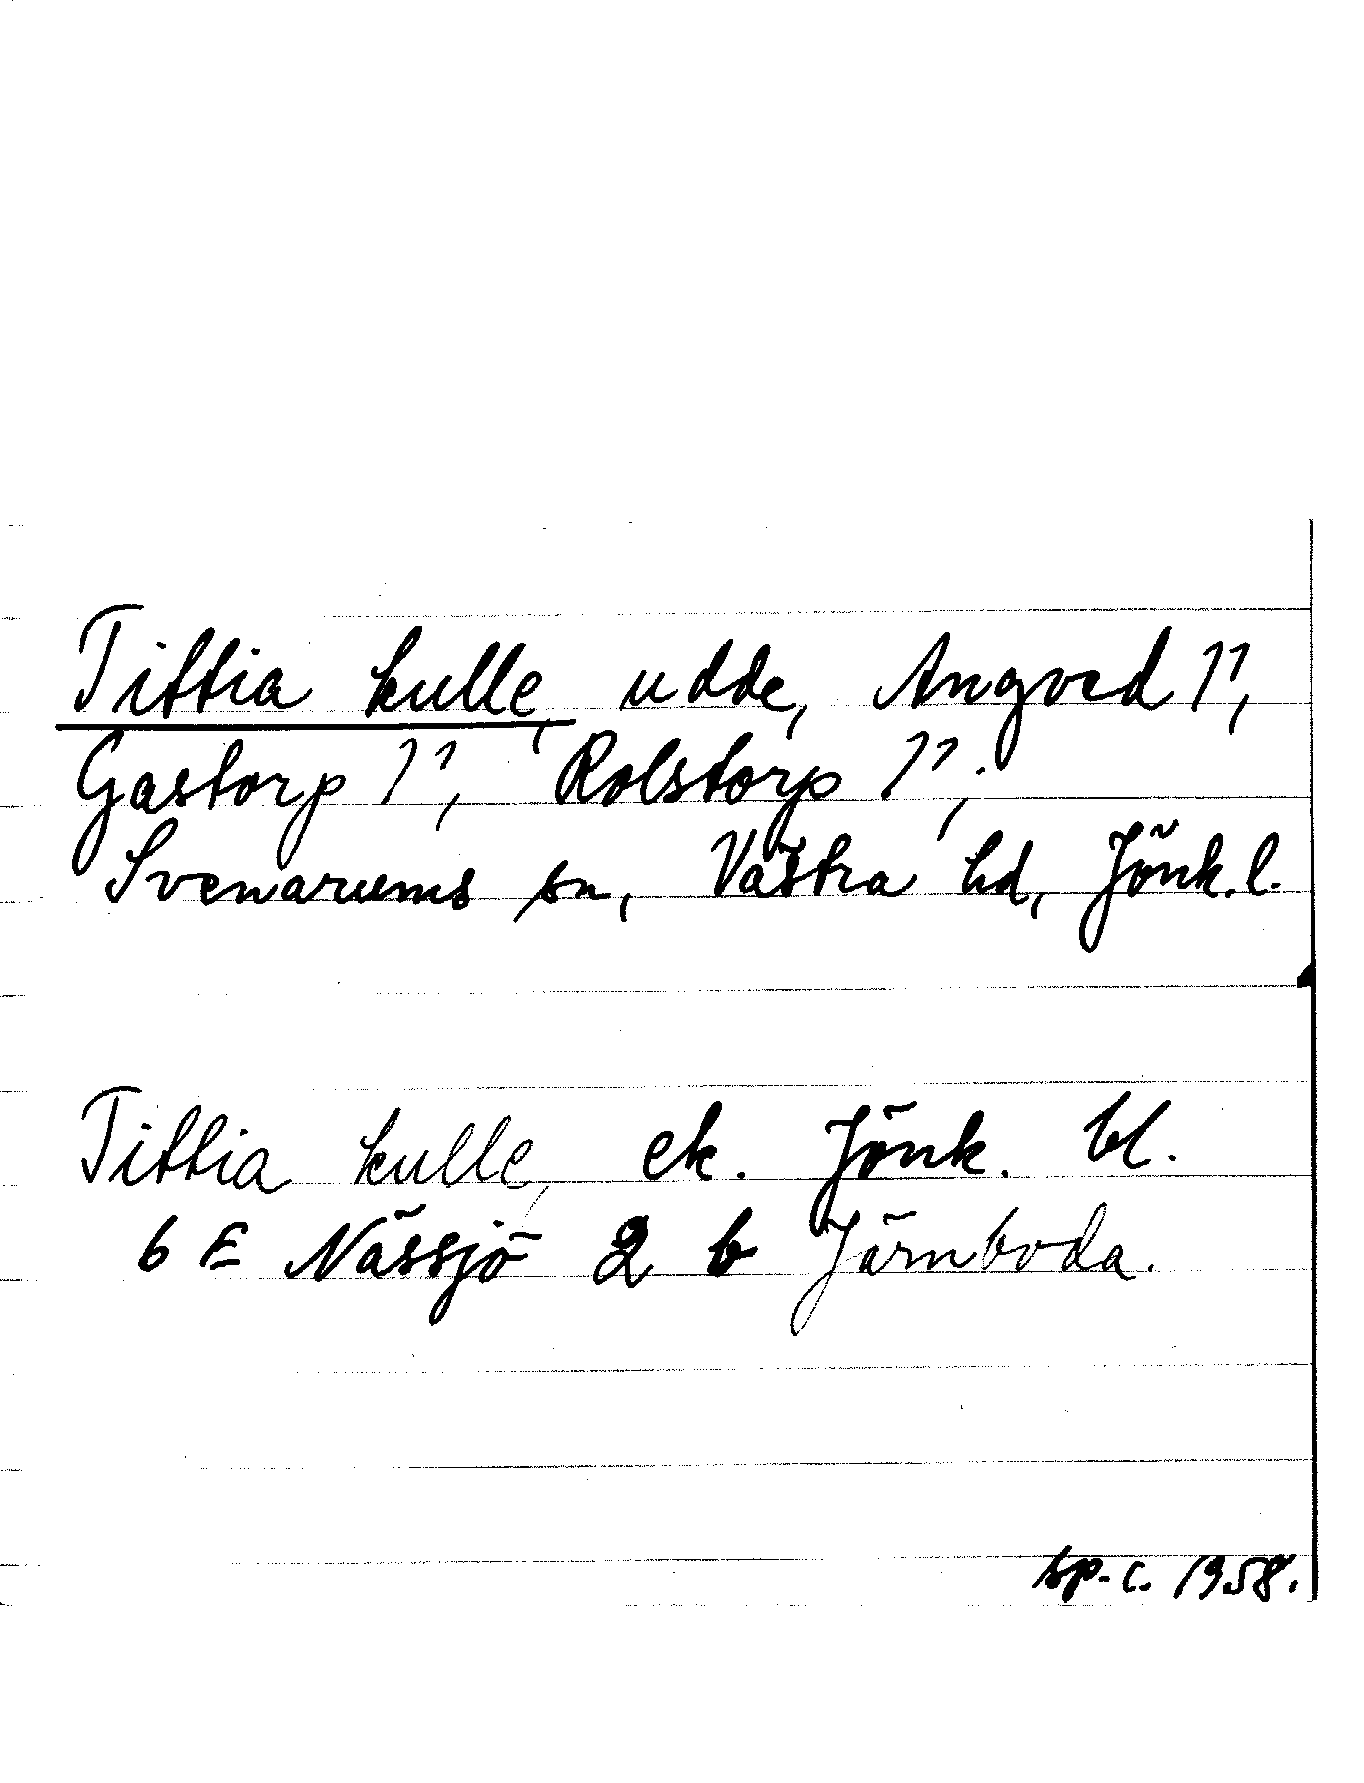 Tittia kulle, udde, Angved 1¹,
Gastorp 1¹, Rolstorp 1¹;
Svenarums sn, Västra hd, Jönk. l.
Tittia kulle, ek. Jönk. bl.
6 E Nässjö 2 b Järnboda.
sp-c. 1958.